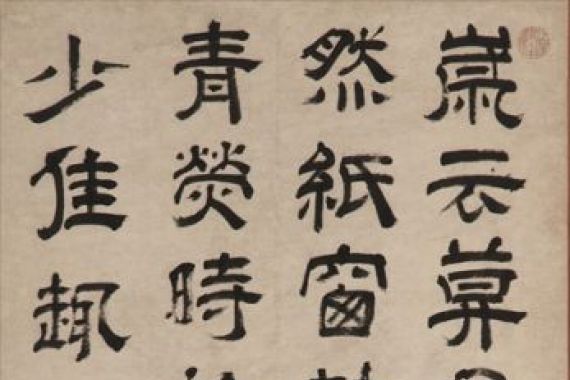 歲云莫
然紙窗
青熒時
少佳趣